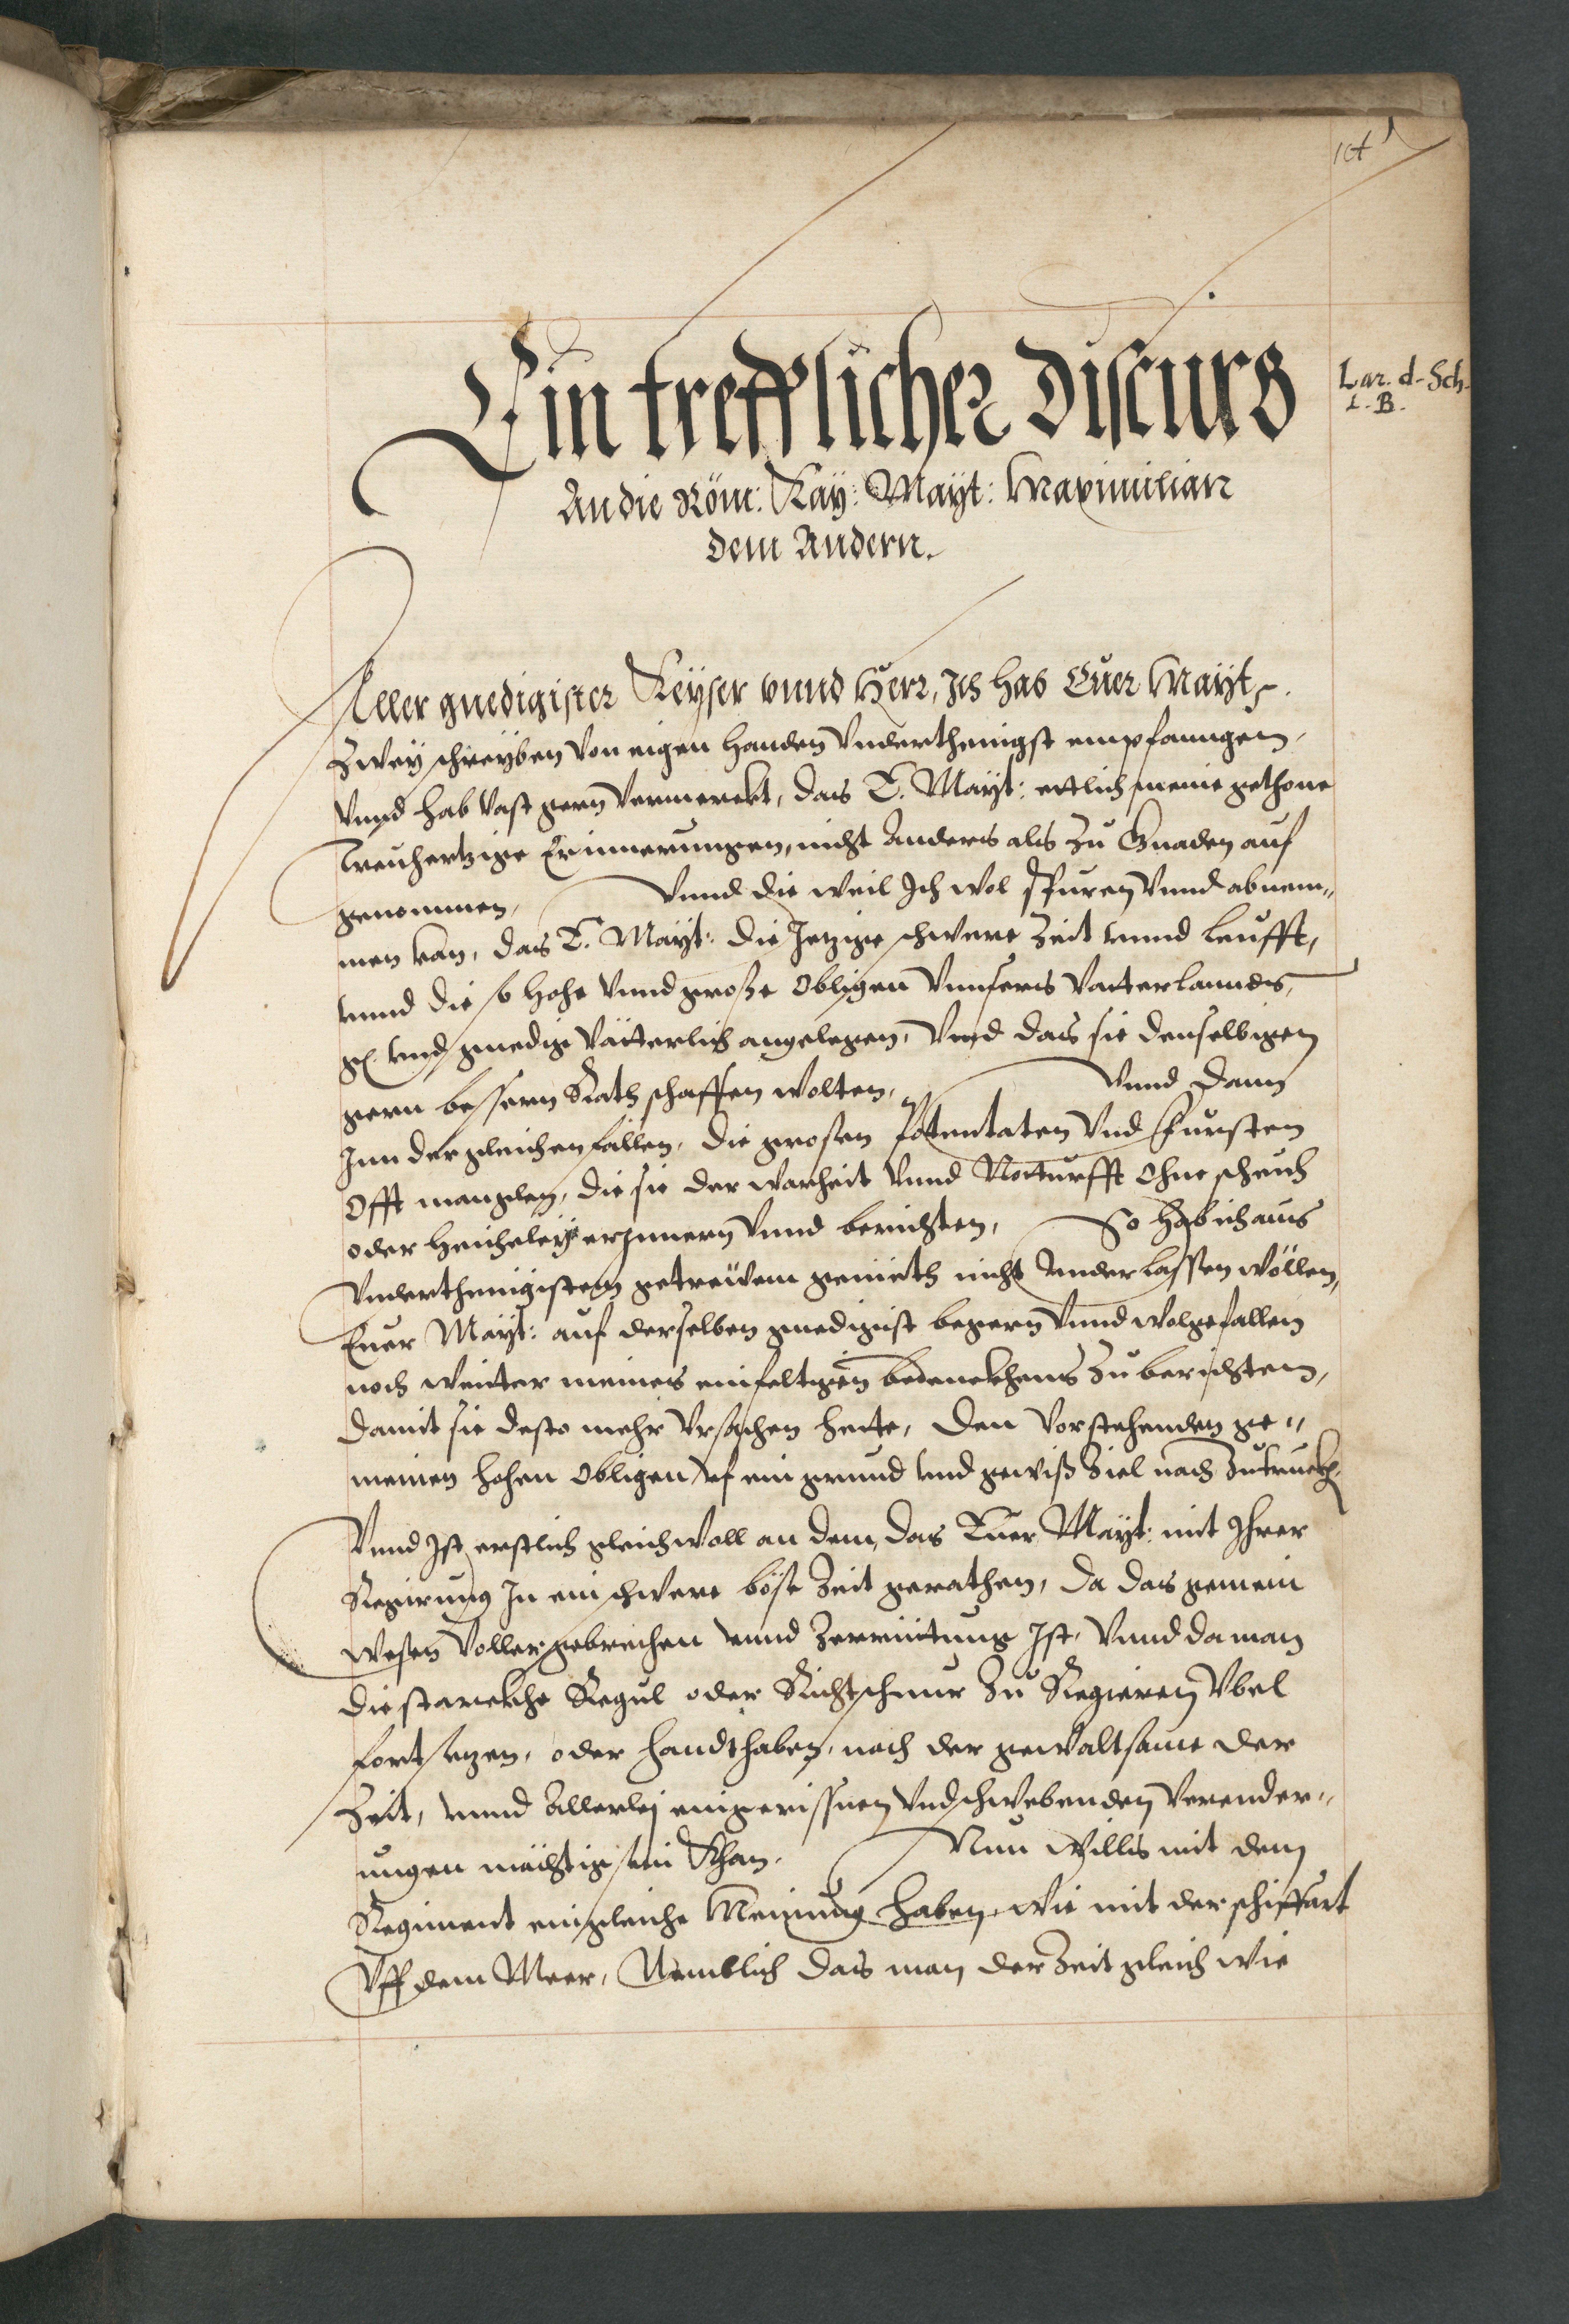 Lar. d. Sch.
L. B.
Ein trefflicher Discurs
An die Röm: Kay: Mayt: Maximilian
dem Andern.
Aller gnedigister Keyser vnnd Herr, Ich hab Euer Mayt
Zwey schreyben von eigen Handen vnderthenigst empfanngen,
vnnd hab vast gern vermerckt, das E. Mayt: ettlich meine gethone
treuhertzige Erinnerungen, nicht Anders als zu Gnaden auf
genommen, Vnnd die weil Ich wol spüren vnnd abnem„
men kan, das E. Mayt: die Jetzige schwere Zeit vnnd leufft,
vnnd die so hohe vnnd große Obligen vnnsers Vatterlanndts,
vnd gnedige Vätterlich angelegen, Vnd das sie denselbigen
gern bessern Rath schaffen wolten, Vnnd dann
Inn dergleichen fällen, die grosen Potentaten vnd Fürsten
Offt manglen, die sie der warheit vnnd Notturfft Ohne scheuch
oder Heicheley erjnnern vnnd berichten, So hab ich aus
Vnderthenigistem getreüwem gemieth nicht vnderlassen wöllen,
Euer Mayt: auf derselben gnedigist begern vnnd wolgefallen
noch weitter meines einfeltigen bedenckhens zu berichten,
damit sie desto mehr Vrsachen hette, den Vorstehenden ge„
meinen hohen Obligen vf ein grund vnd gewiß Ziel nach zutruckh.
Vnnd Ist erstlich gleichwoll an dem, das Euer Mayt: mit Ihrer
Regirung In ein schwere böse Zeit gerathen, da das gemein
wesen voller gebrechen vnnd Zerrüttung Ist, Vnnd da man
die starckhe Regul oder Richtschnur zu Regieren Vbel
fortsetzen, oder handthaben, noch der gewaltsame der
Zeit, vnnd Allerlej eingerissnen vnd schwebenden Verender„
ungen mächtig sein Khan. Nun Will es mit dem
Regiment ein gleiche Meinung haben, wie mit der schiffart
Vff dem Meer, Nemblich das man der Zeit gleich wie